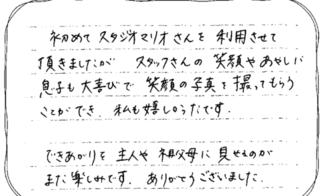 初めて スタジオマリオさんを 利用させて
頂きましたが スタッフさんの 笑顔やあやしに
息子も大喜びで 笑顔の写真を撮ってもらう
ことができ、私も嬉しかったです。
できあがりを 主人や 祖父母に 見せるのが
また楽しみです。ありがとうございました。